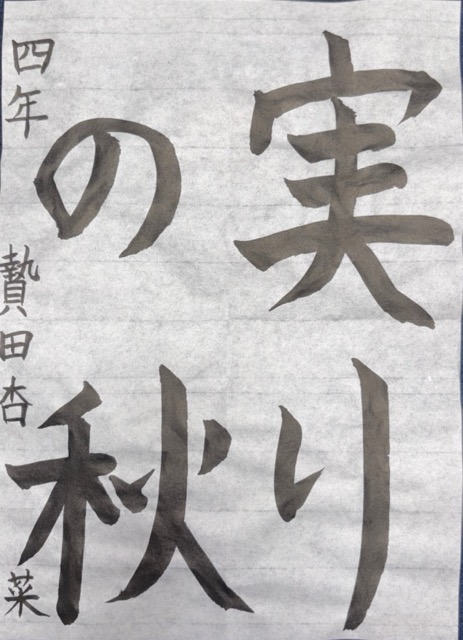 実り
の秋
四年 贄田杏菜